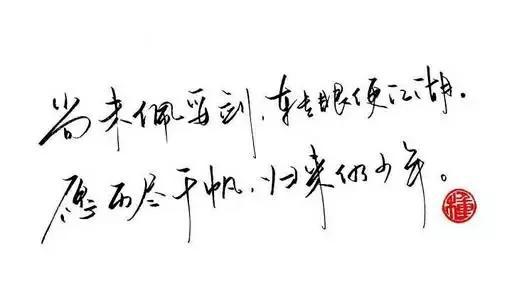 尚未佩妥剑，转眼便江湖。
愿历尽千帆，归来仍少年。